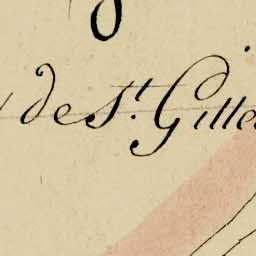 de St. Gille